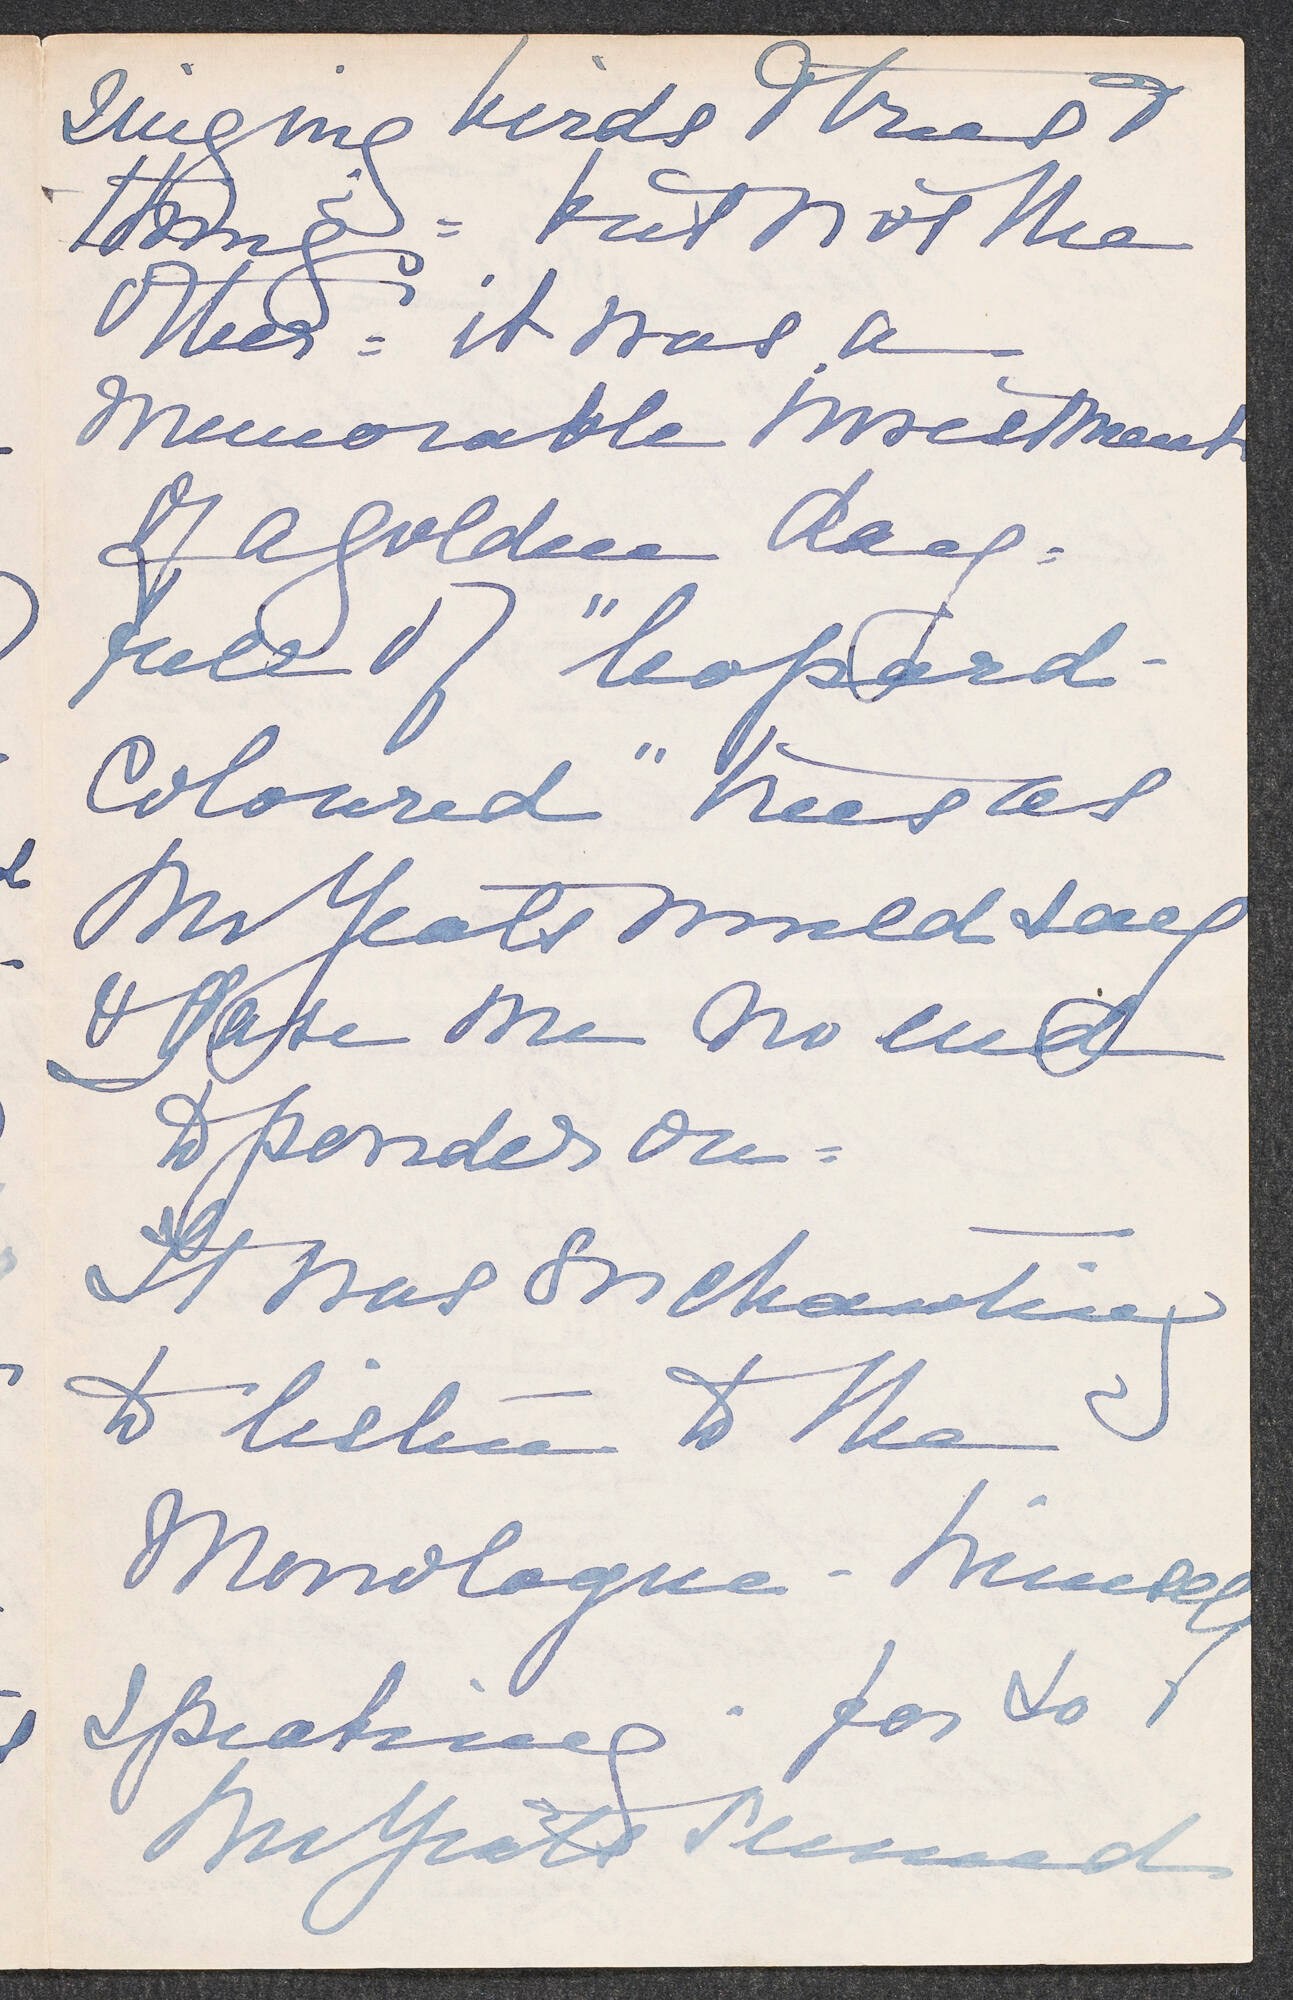 Singing birds & trees &
things = but not the
other = it was a
memorable investment
of a golden day =
full of "leopard-
coloured" trees as
Mr Yeats would say
& gave me no end
to ponder on =
It was enchanting
to listen to the
Monologue - himself
speaking - for so
Mr Yeats seemed